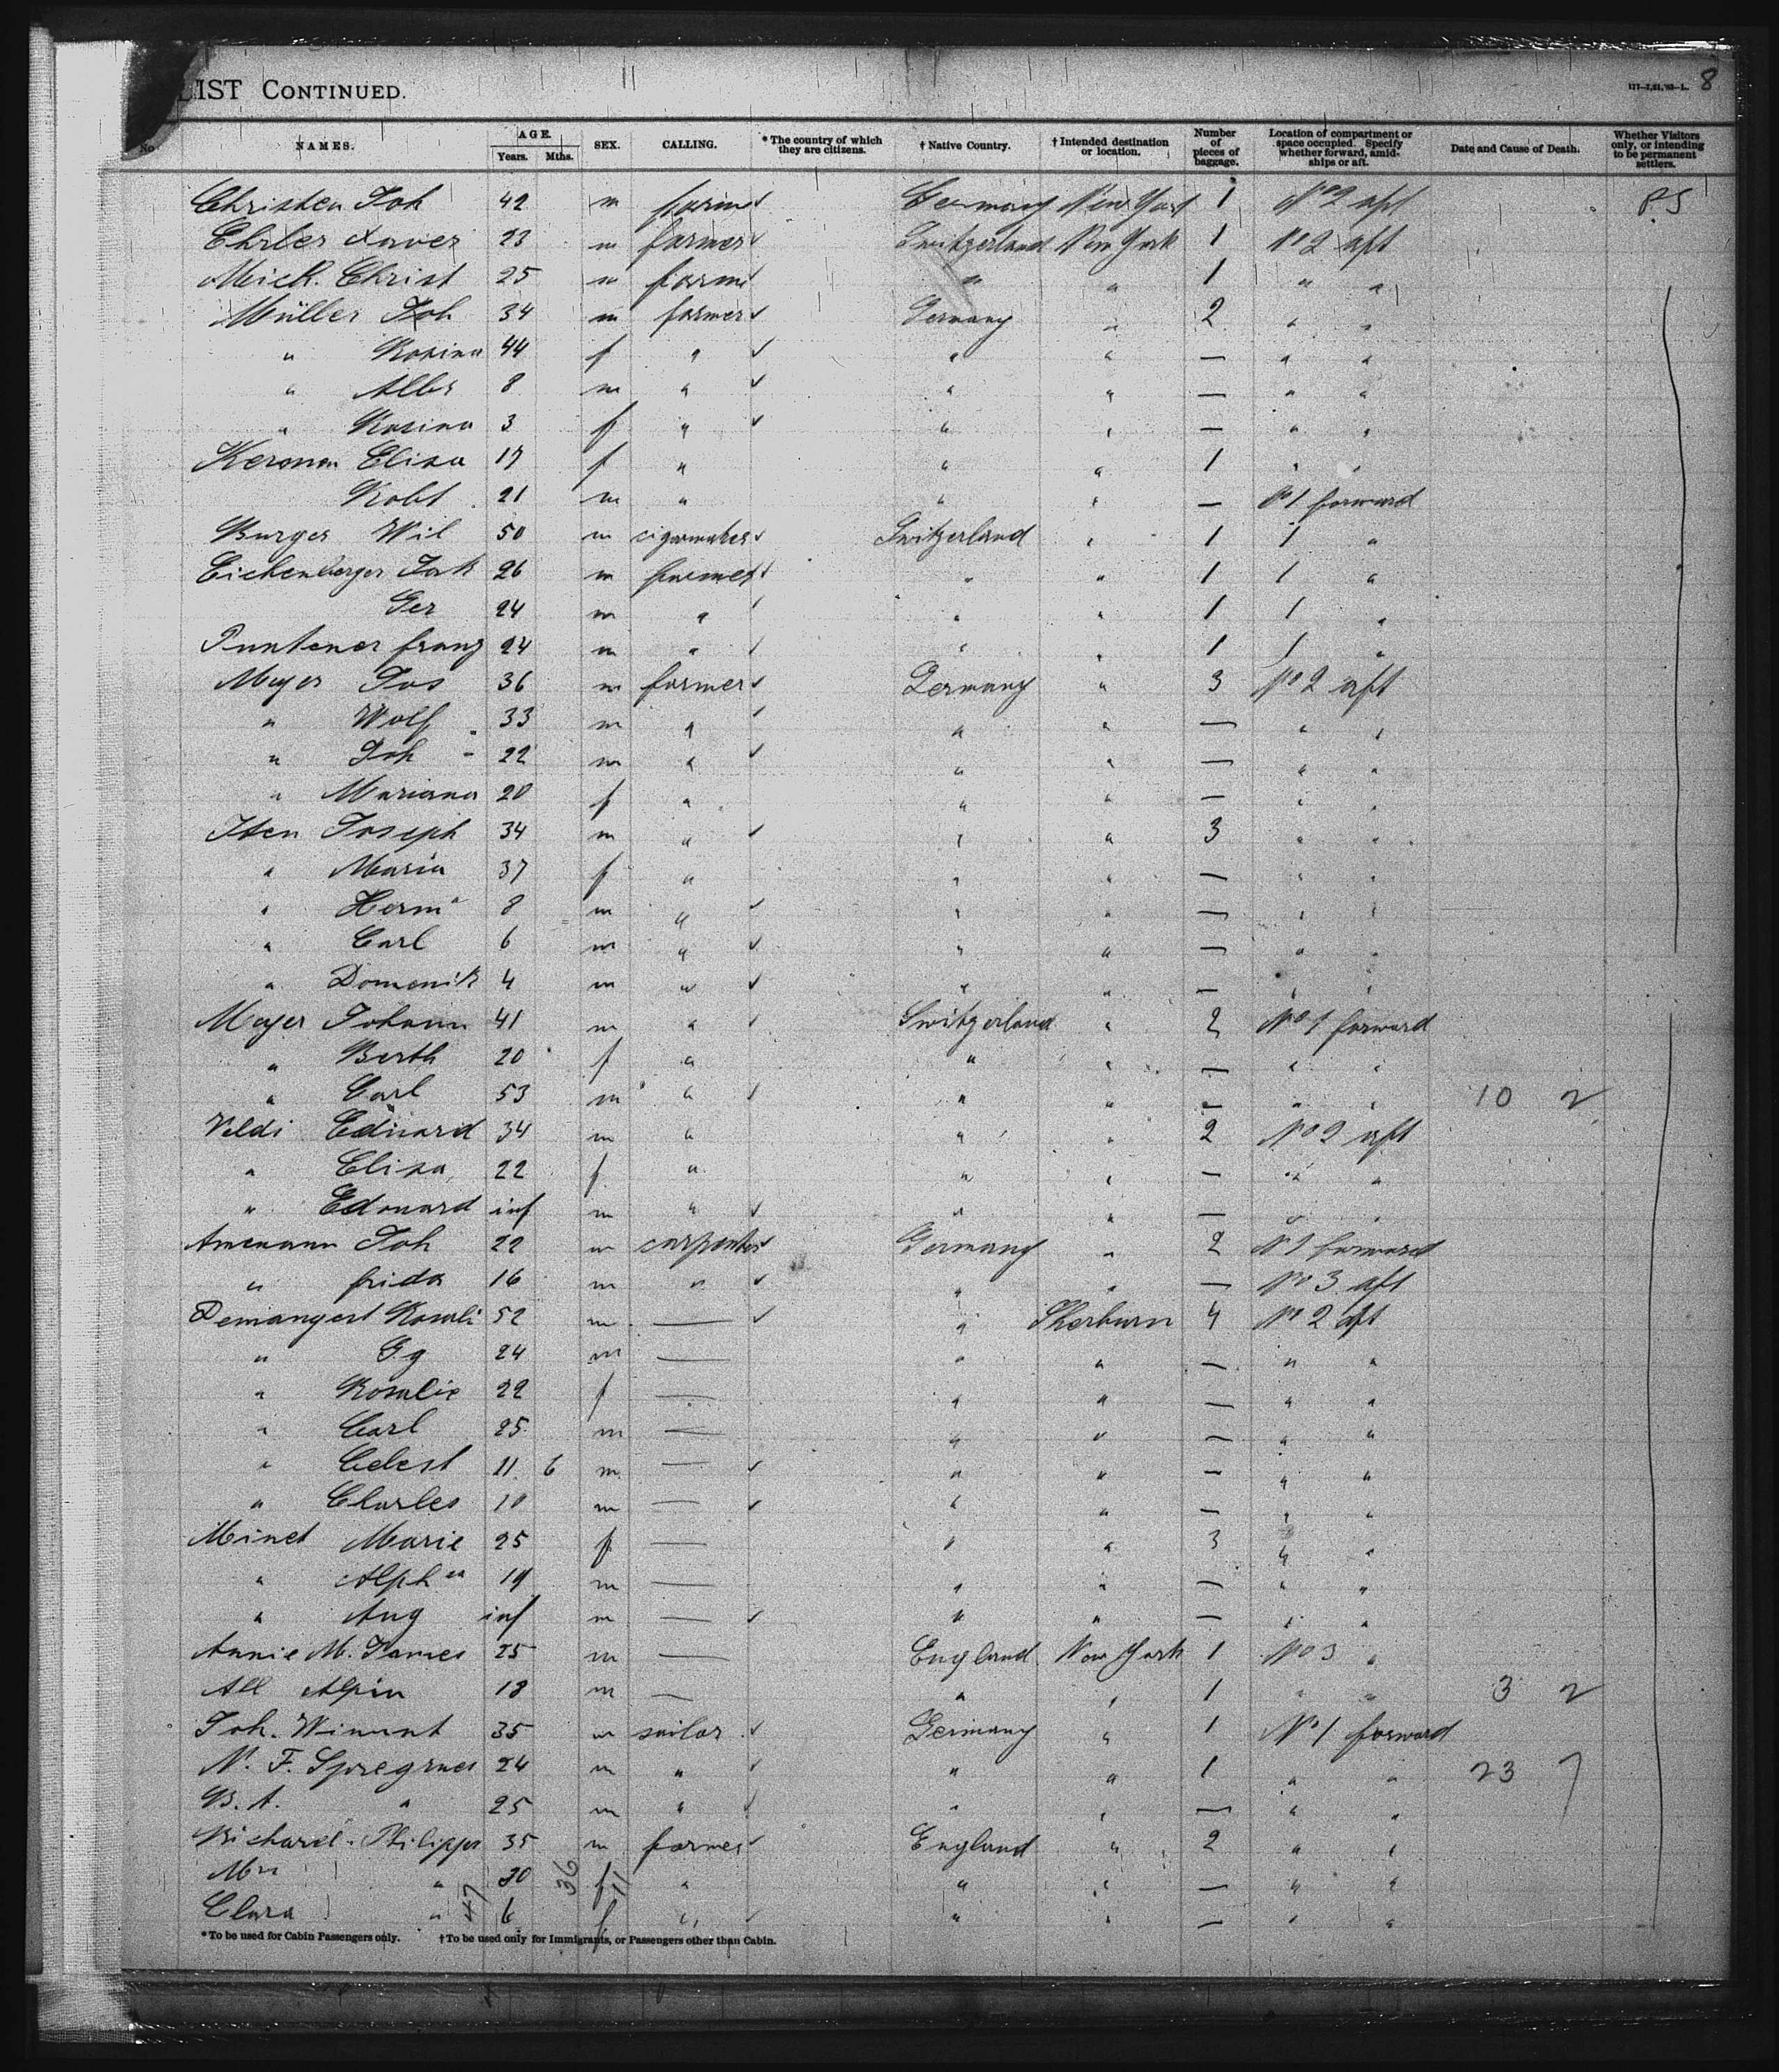 LIST CONTINUED. 177-7,21,'93-L. 8
No. NAMES. AGE. Years. Mths. SEX. CALLING. * The country of which they are citizens. † Native Country. † Intended destination or location. Number of pieces of baggage. Location of compartment or space occupied. Specify whether forward, amidships or aft. Date and Cause of Death. Whether Visitors only, or intending to be permanent settlers.
Christen Joh 42 m farmer ✓ Germany New York 1 No 2 aft PS
Ehrler Xaver 23 m farmer ✓ Switzerland New York 1 No 2 aft
Christ 25 m farmer ✓ " " 1 " "
Müller Joh 34 m farmer ✓ Germany " 2 " "
" Rosina 44 f " ✓ " " — " "
" Albr 8 m " ✓ " " — " "
" Rosina 3 f " ✓ " " — " "
Elisa 17 f " " " 1 " "
Robt 21 m " " " — No 1 forward
Burger Wil 50 m cigarmaker ✓ Switzerland " 1 1 "
Eichenberger Jak 26 m farmer ✓ " " 1 1 "
Ger 24 m " ✓ " " 1 1 "
Puntener franz 24 m " ✓ " " 1 1 "
Meyer Jos 36 m farmer ✓ Germany " 3 No 2 aft
" Wolf 33 m " ✓ " " — " "
" Joh 22 m " ✓ " " — " "
" Mariana 20 f " " " — " "
Iten Joseph 34 m " ✓ " " 3 " "
" Maria 37 f " " " — " "
" Herm 8 m " ✓ " " — " "
" Carl 6 m " ✓ " " — " "
" Domenik 4 m " ✓ " " — " "
Meyer Johann 41 m " ✓ Switzerland " 2 No 1 forward
" Berth 20 f " " " — " "
" Carl 53 m " ✓ " " — " " 10 2
Veldi Eduard 34 m " " " 2 No 2 aft
" Elisa 22 f " " " — " "
" Edouard inf m " ✓ " " — " "
Amemann Joh 22 m carpenter ✓ Germany " 2 No 1 forward
" frida 16 m " ✓ " " — No 3 aft
Demangest Rosali 52 m — ✓ " Sherburn 4 No 2 aft
" Gg 24 m — " " — " "
" Rosalie 22 f — " " — " "
" Carl 25 m — " " — " "
" Celest 11 6 m — ✓ " " — " "
" Charles 10 m — ✓ " " — " "
Minet Marie 25 f — " " 3 " "
" Alph 19 m — " " — " "
" Aug inf m — ✓ " " — " "
Annie M. James 25 m — England New York 1 No 3 "
All Alpin 18 m — " " 1 " " 3 2
Joh. 35 m sailor ✓ Germany " 1 No 1 forward
N. F. 24 m " ✓ " " 1 " " 23 7
B. A. " 25 m " ✓ " " — " "
Richard Philipps 35 m farmer ✓ England " 2 " "
Mrs " 30 36 f 11 " " " — " "
Clara " 47 6 f " ✓ " " — " "
*To be used for Cabin Passengers only. †To be used only for Immigrants, or Passengers other than Cabin.